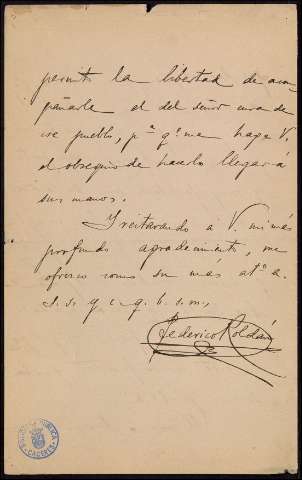 permito la libertad de acom
pañarle el del señor cura de
ese pueblo, pª qᵉ me haga V.
el obsequio de hacerlo llegar á
sus manos.
Y reiterando á V. mi más
profundo agradecimiento, me
ofrezco como su más attº a.
s. s. y c. q. b. s. m.,
Federico Roldán
BIBLIOTECA PÚBLICA
CÁCERES